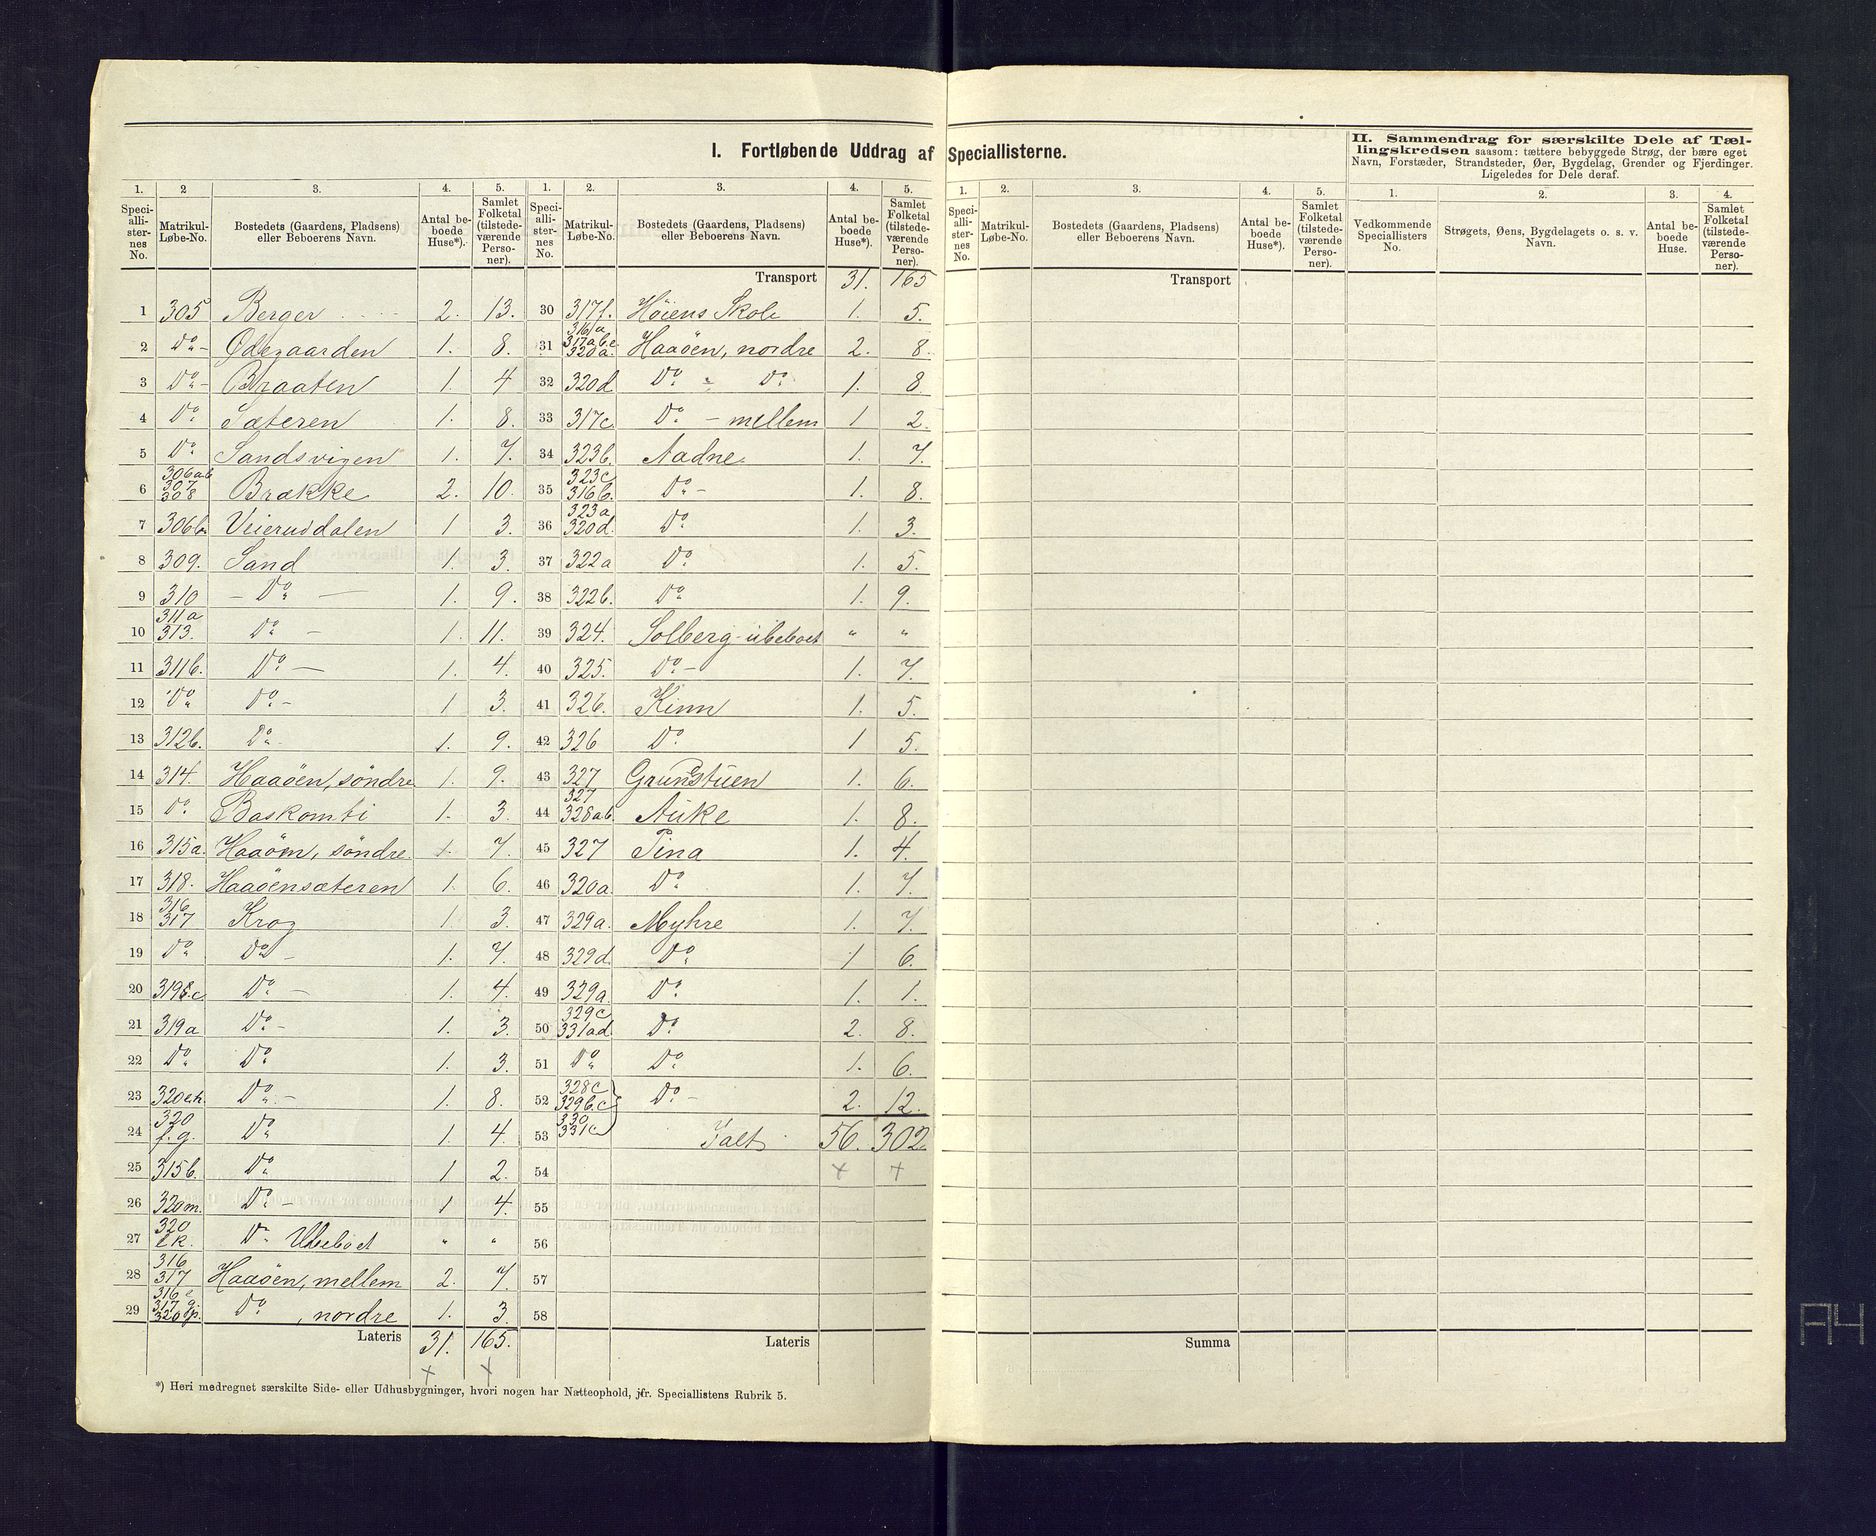 I. Fortløbende Uddrag af Speciallisterne.
II. Sammendrag for særskilte Dele af Tællingskredsen saasom: tættere bebyggede Strøg, der bære eget Navn, Forstæder, Strandsteder, Øer, Bygdelag, Grender og Fjerdinger. Ligeledes for Dele deraf.
1. 2 3. 4. 5. 1. 2. 3. 4. 5. 1. 2. 3. 4. 5. 1. 2. 3. 4.
Speciallisternes No. Matrikul-Løbe-No. Bostedets (Gaardens, Pladsens) eller Beboerens Navn. Antal beboede Huse*). Samlet Folketal (tilstedeværende Personer).
Speciallisternes No. Matrikul-Løbe-No. Bostedets (Gaardens, Pladsens) eller Beboerens Navn. Antal beboede Huse*). Samlet Folketal (tilstedeværende Personer).
Speciallisternes No. Matrikul-Løbe-No. Bostedets (Gaardens, Pladsens) eller Beboerens Navn. Antal beboede Huse*). Samlet Folketal (tilstedeværende Personer).
Vedkommende Speciallisters No. Strøgets, Øens, Bygdelagets o. s. v. Navn. Antal beboede Huse. Samlet Folketal (tilstedeværende Personer).
1 305 Berger 2. 13.
2 Do- Ødegaarden 1. 8.
3 Do- Braaten 1. 4
4 Do Sæteren 1. 8.
5 Do Sandsvigen 1. 7.
6 306ab 307 308 Brække 2. 10.
7 306b. Veieruddalen 1 3.
8 309. Sand 1. 3.
9 310 - Do - 1. 9.
10 311a 313. Do - 1. 11.
11 311b. Do - 1. 4.
12 Do Do- 1 3.
13 312b. Do. 1. 9.
14 314. Haaöen, söndre 1. 9.
15 Do Baskomti 1. 3.
16 315a. Haaöen, söndre. 1. 7.
17 318. Haaöensæteren 1. 6.
18 316 317 Krog 1. 3.
19 Do Do- 1. 7.
20 Do - 1. 4.
21 319a Do- 1. 3.
22 Do Do 1. 3.
23 Do- 1. 8.
24 320 f.g. Do 1. 4.
25 315b. Do 1 2.
26 320m. Do- 1 4.
27 320 Do Ubeboet " "
28 316 317 Haaöen, mellem 2. 7.
29 Do, nordre 1. 3.
Lateris 31. 165.
Transport 31. 165
30 317f. Höiens Skole 1. 5.
31 Haaöen, nordre 2. 8.
32 320d Do " Do 1. 8
33 317c. Do - mellem 1 2.
34 323b. Aadne. 1. 7.
35 323c 316b. Do- 1. 8.
36 323a 320d. Do 1. 3.
37 322a Do 1. 5.
38 322b. Do 1. 9.
39 324. Solberg-ubeboet " "
40 325. Do- 1. 7.
41 326. Kinn 1. 5.
42 326 Do. 1 5.
43 327 Grundstuen 1. 6.
44 327 328ab. Auke 1. 8.
45 327 Pina 1. 4.
46 320a. Do 1. 7.
47 329a. Myhre 1. 7.
48 329d. Do 1 6.
49 329a. Do 1. 1.
50 329c 331ad. Do 2. 8.
51 Do Do 1. 6.
52 328c 329b.c Do - 2. 12.
53 330 331c Ialt 56. 302
54
55
56
57
58
Lateris
Transport
Summa
*) Heri medregnet særskilte Side- eller Udhusbygninger, hvori nogen har Natteophold, jfr. Speciallistens Rubrik 5.
A4